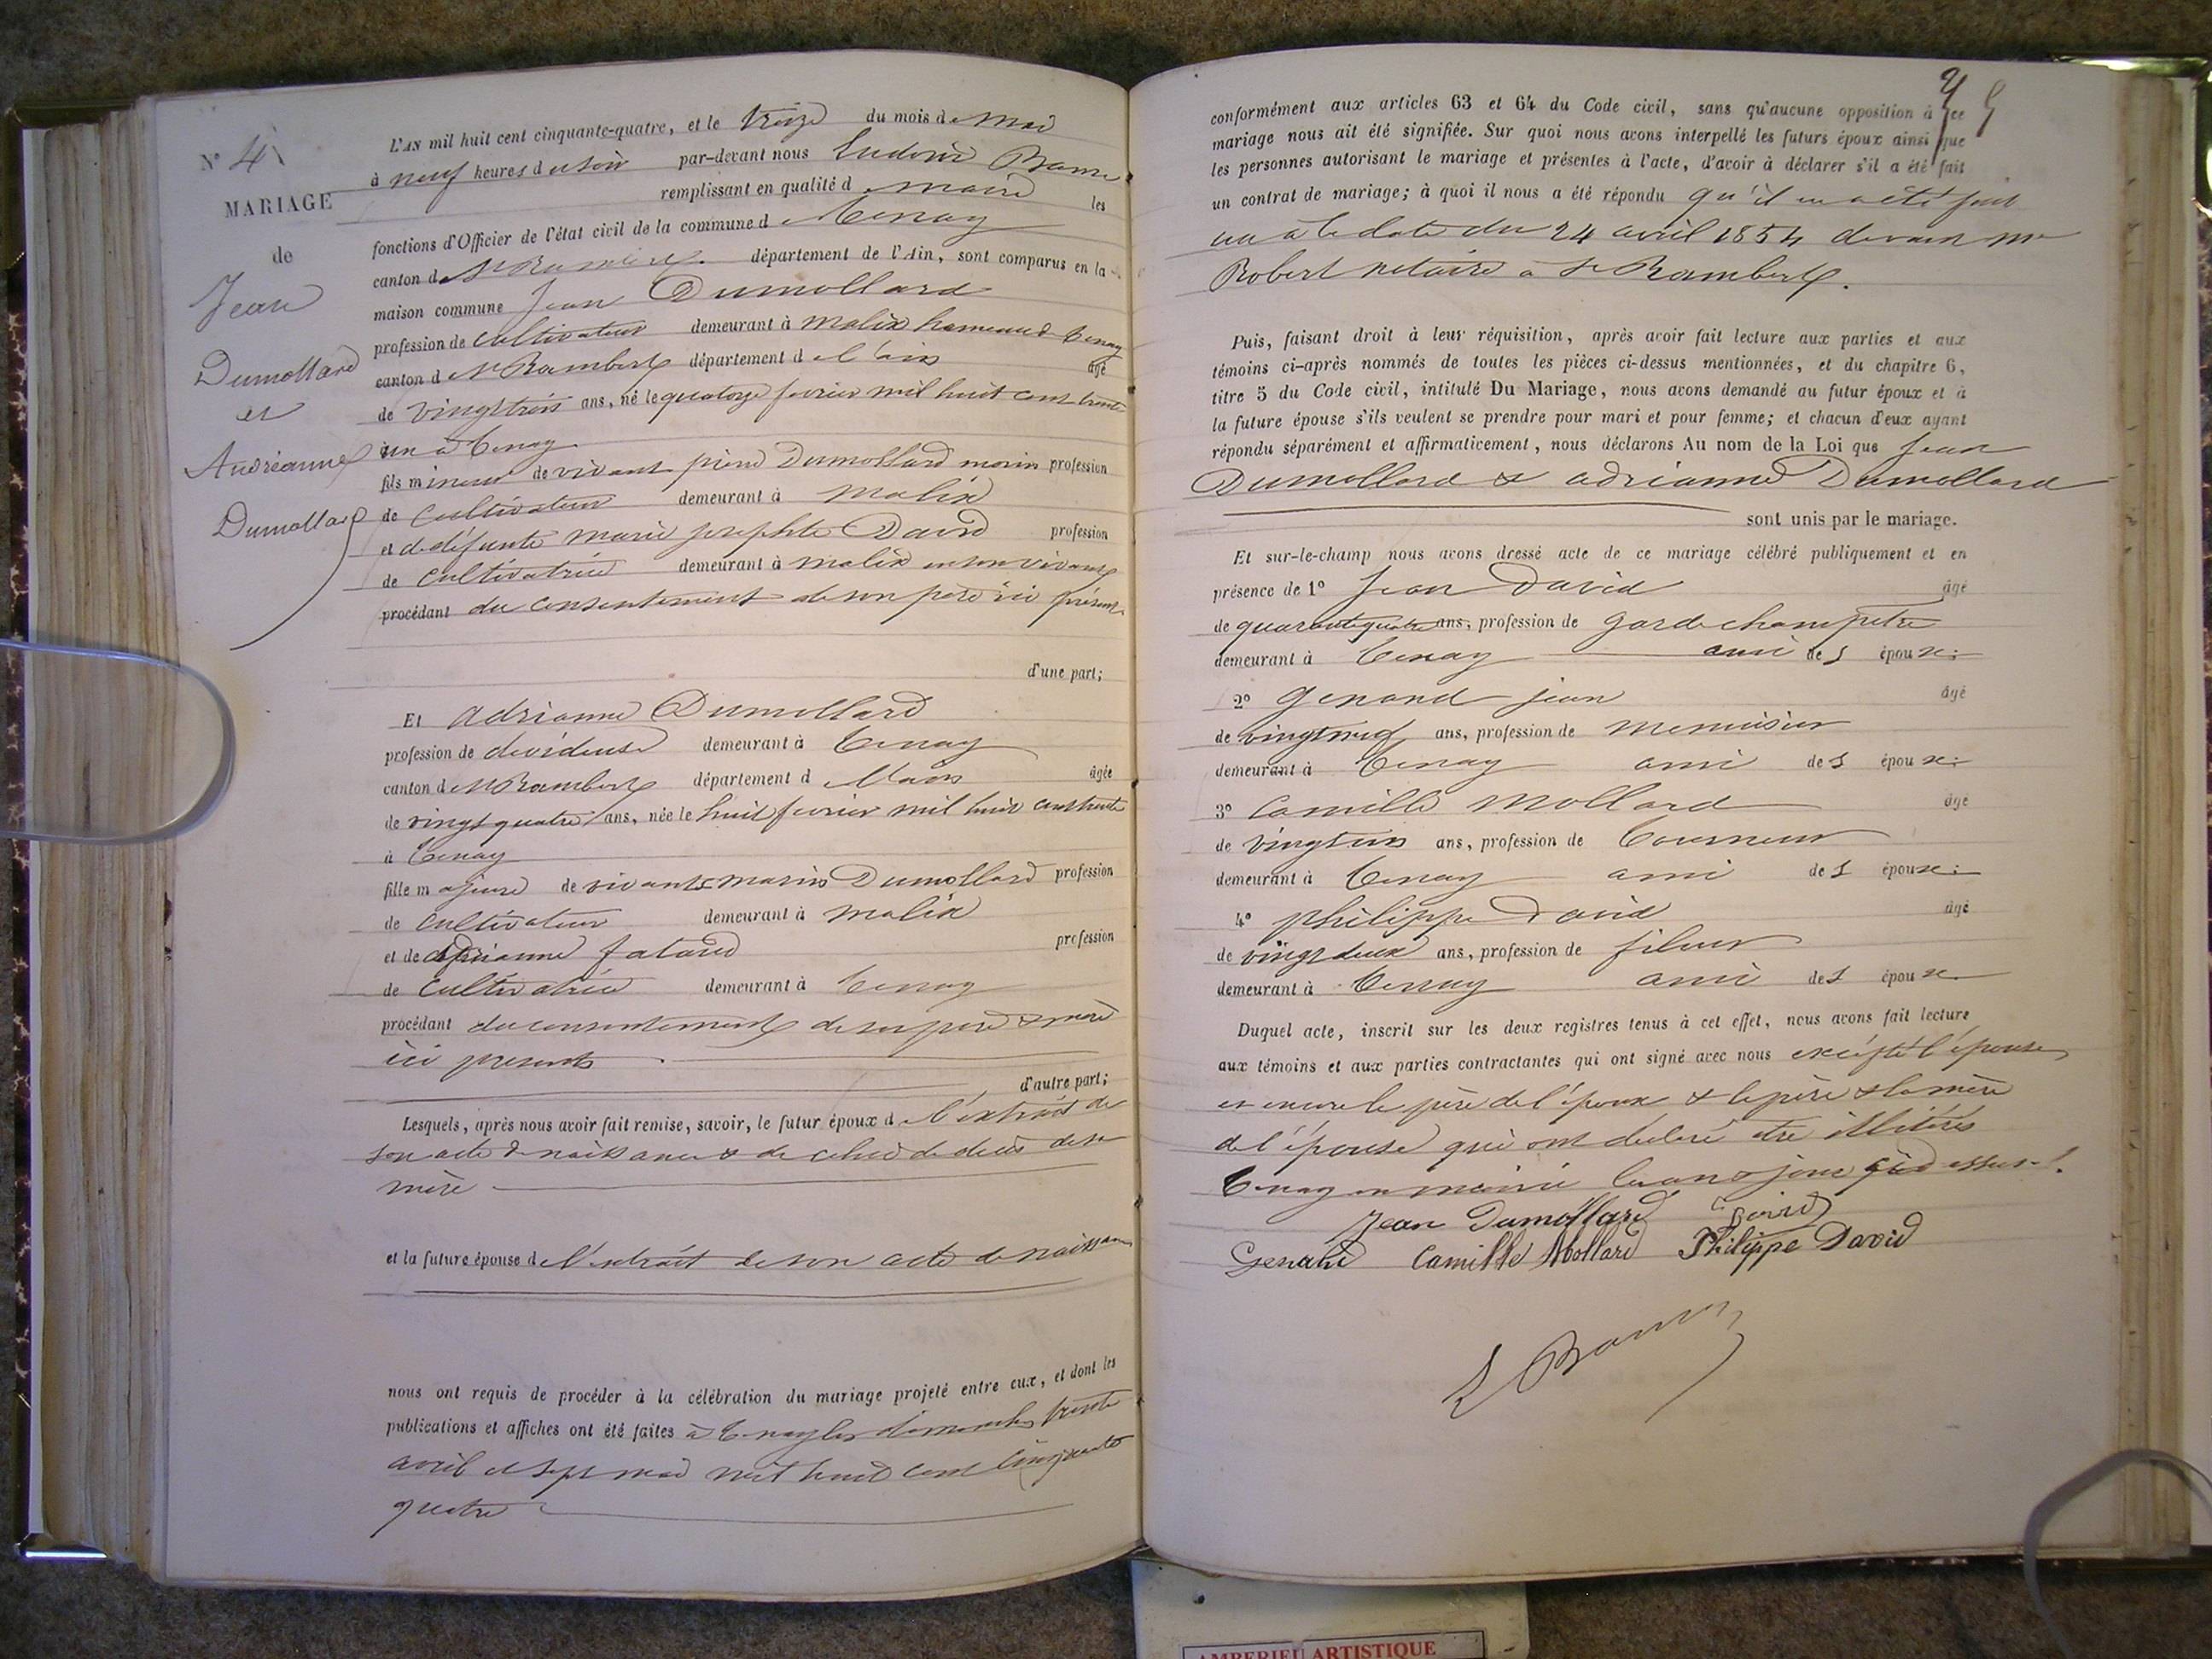 N° 4
MARIAGE
de
Jean
Dumollard
et
Andréanne
Dumollard
L'AN mil huit cent cinquante-quatre, et le treize du mois de Mai
à neuf heures du soir par-devant nous Ludovic
remplissant en qualité d maire les
fonctions d'Officier de l'état civil de la commune de Tenay
canton de St Rambert département de l'Ain, sont comparus en la
maison commune Jean Dumollard
profession de cultivateur demeurant à Malix hameau d Tenay
canton de St Rambert département de l'ain âgé
de vingt trois ans, né le quatorze fevrier mil huit cent trente
un à Tenay
fils mineur de vivant pierre Dumollard morin profession
de Cultivateur demeurant à Malix
et de défunte marie josephte David profession
de Cultivatrice demeurant à malix en son vivant
procédant du consentement de son père ici présent
d'une part;
Et Adrianne Dumollard
profession de devideuse demeurant à Tenay
canton de St Rambert département de l'ain âgée
de vingt quatre ans, née le huit fevrier mil huit cent trente
à Tenay
fille majeure de vivants marin Dumollard profession
de Cultivateur demeurant à Malix
et de adrianne fatard profession
de Cultivatrice demeurant à Tenay
procédant du consentement de ses père & mère
ici presents
d'autre part;
Lesquels, après nous avoir fait remise, savoir, le futur époux de l'extrait de
son acte de naissance & de celui de décès de sa
mère
et la future épouse de l'extrait de son acte de naissance
nous ont requis de procéder à la célébration du mariage projeté entre eux, et dont les
publications et affiches ont été faites à Tenay les dimanches trente
avril et sept mai mil huit cent cinquante
quatre
conformément aux articles 63 et 64 du Code civil, sans qu'aucune opposition à ce
mariage nous ait été signifiée. Sur quoi nous avons interpellé les futurs époux ainsi que
les personnes autorisant le mariage et présentes à l'acte, d'avoir à déclarer s'il a été fait
un contrat de mariage; à quoi il nous a été répondu qu'il en a été fait
un à la date du 24 avril 1854 devant Me
Robert notaire à St Rambert.
Puis, faisant droit à leur réquisition, après avoir fait lecture aux parties et aux
témoins ci-après nommés de toutes les pièces ci-dessus mentionnées, et du chapitre 6,
titre 5 du Code civil, intitulé Du Mariage, nous avons demandé au futur époux et à
la future épouse s'ils veulent se prendre pour mari et pour femme; et chacun d'eux ayant
répondu séparément et affirmativement, nous déclarons Au nom de la Loi que Jean
Dumollard & adrianne Dumollard
sont unis par le mariage.
Et sur-le-champ nous avons dressé acte de ce mariage célébré publiquement et en
présence de 1° Jean David âgé
de quarante quatre ans, profession de garde champetre
demeurant à Tenay ami des époux;
2° genand jean âgé
de vingt neuf ans, profession de menuisier
demeurant à Tenay ami des époux;
3° Camille Mollard âgé
de vingt un ans, profession de Tourneur
demeurant à Tenay ami des époux;
4° philippe David âgé
de vingt deux ans, profession de fileur
demeurant à Tenay ami des époux
Duquel acte, inscrit sur les deux registres tenus à cet effet, nous avons fait lecture
aux témoins et aux parties contractantes qui ont signé avec nous excépté l'épouse
et encore le père de l'époux & le père & la mère
de l'épouse qui ont declaré etre illitérés
Tenay en mairie les an & jour ci dessus
Jean Dumollard David
Genand Camille Mollard Philippe David
AMBERIEU ARTISTIQUE